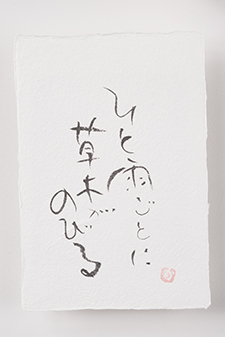 ひと雨ごとに
草木が
のびる